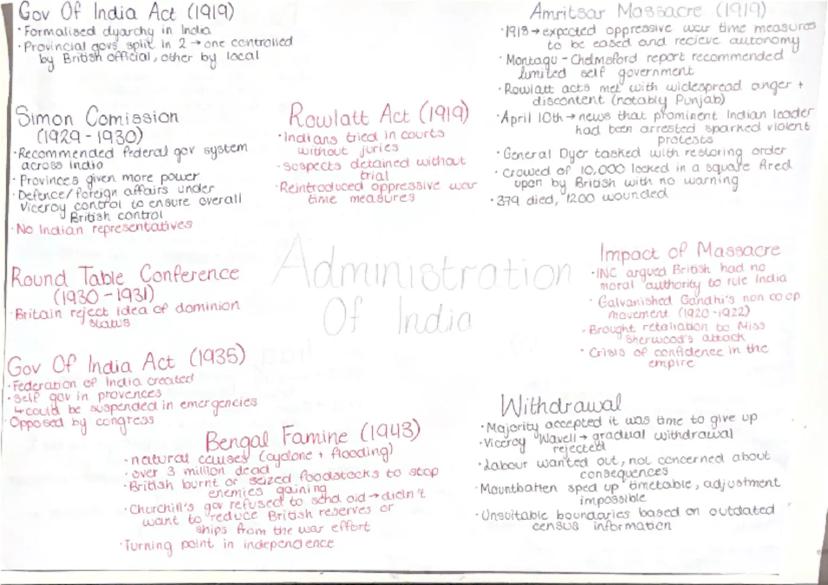 Gov Of India Act (1919)
· Formalised dyarchy in India
· Provincial govs split in 2 → one controlled
by British official, other by local
Simon Comission
(1929-1930)
· Recommended federal gov system
across India
· Provinces given more power
· Defence/foreign affairs under
Viceroy control to ensure overall
British control
· No Indian representatives
Round Table Conference
(1930-1931)
· Britain reject idea of dominion
status
Gov Of India Act (1935)
· Federation of India created
· Self gov in provences
↳ could be suspended in emergencies
· Opposed by congress
Bengal Famine (1943)
· natural causes (cyclone + flooding)
· over 3 million dead
· British burnt or seized foodstocks to stop
enemies gaining
· Churchill's gov refused to send aid → didn't
want to reduce British reserves or
ships from the war effort
· Turning point in independence
Rowlatt Act (1919)
· Indians tried in courts
without juries
· Suspects detained without
trial
· Reintroduced oppressive war
time measures
Administration
Of India
Amritsar Massacre (1919)
· 1918 → expected oppressive war time measures
to be eased and recieve autonomy
· Montagu-Chelmsford report recommended
limited self government
· Rowlatt acts met with widespread anger +
discontent (notably Punjab)
· April 10th → news that prominent Indian leader
had been arrested sparked violent
protests
· General Dyer tasked with restoring order
· Crowed of 10,000 locked in a square fired
upon by British with no warning
· 379 died, 1200 wounded
Impact of Massacre
· INC argued British had no
moral authority to rule India
· Galvanished Gandhi's non co op
movement (1920-1922)
· Brought retaliation to Miss
Sherwood's attack
· Crisis of confidence in the
empire
Withdrawal
· Majority accepted it was time to give up
· Viceroy Wavell → gradual withdrawal
rejected
· Labour wanted out, not concerned about
consequences
· Mountbatten sped up timetable, adjustment
impossible
· Unsuitable boundaries based on outdated
census information